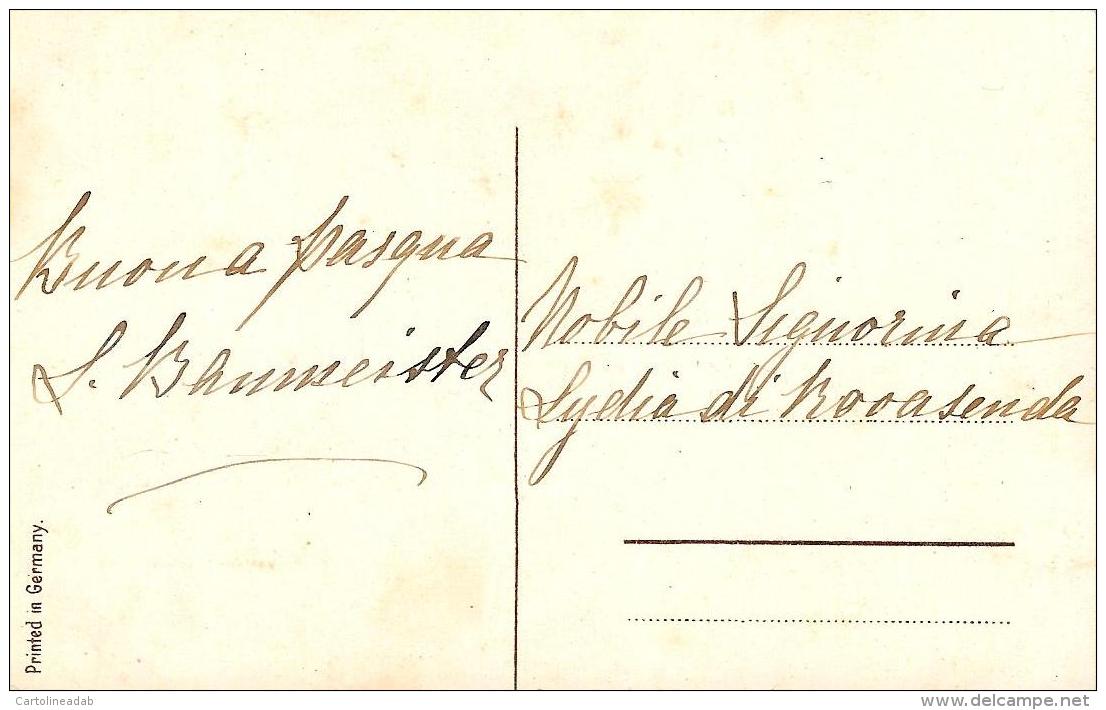 Buona pasqua
S. Baumeister
Nobile Signorina
Lydia di Rovasenda
Printed in Germany.
Cartolineadab
delcampe.net